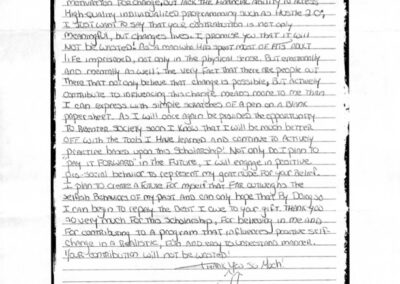 motivation for change, but lack the financial ability to access
high-quality individualized programming such as Hustle 2.0,
I just want to say that your contribution is not only
meaningful, but changes lives. I promise you that it will
not be wasted! As a man who has spent most of his adult
life imprisoned, not only in the physical sense, but emotionally
and mentally as well, the very fact that there are people out
there that not only believe that change is possible, but actively
contribute to influencing this change means more to me then
I can express with simple scratches of a pen on a blank
paper sheet. As I will once again be provided the opportunity
to reenter society soon I know that I will be much better
off with the tools I have learned and continue to actively
practice based upon this scholarship. Not only do I plan to
"pay it forward" in the future, I will engage in positive
pro-social behavior to represent my gratitude for your belief.
I plan to create a future for myself that far outweighs the
behaviors of my past and can only hope that by doing so
I can begin to repay the debt I owe to your gift. Thank you
so very much for this scholarship, for believing in me and
for contributing to a program that influences positive self-
change in a realistic, fun and easy to understand manner.
Your contribution will not be wasted!
Thank you so much!